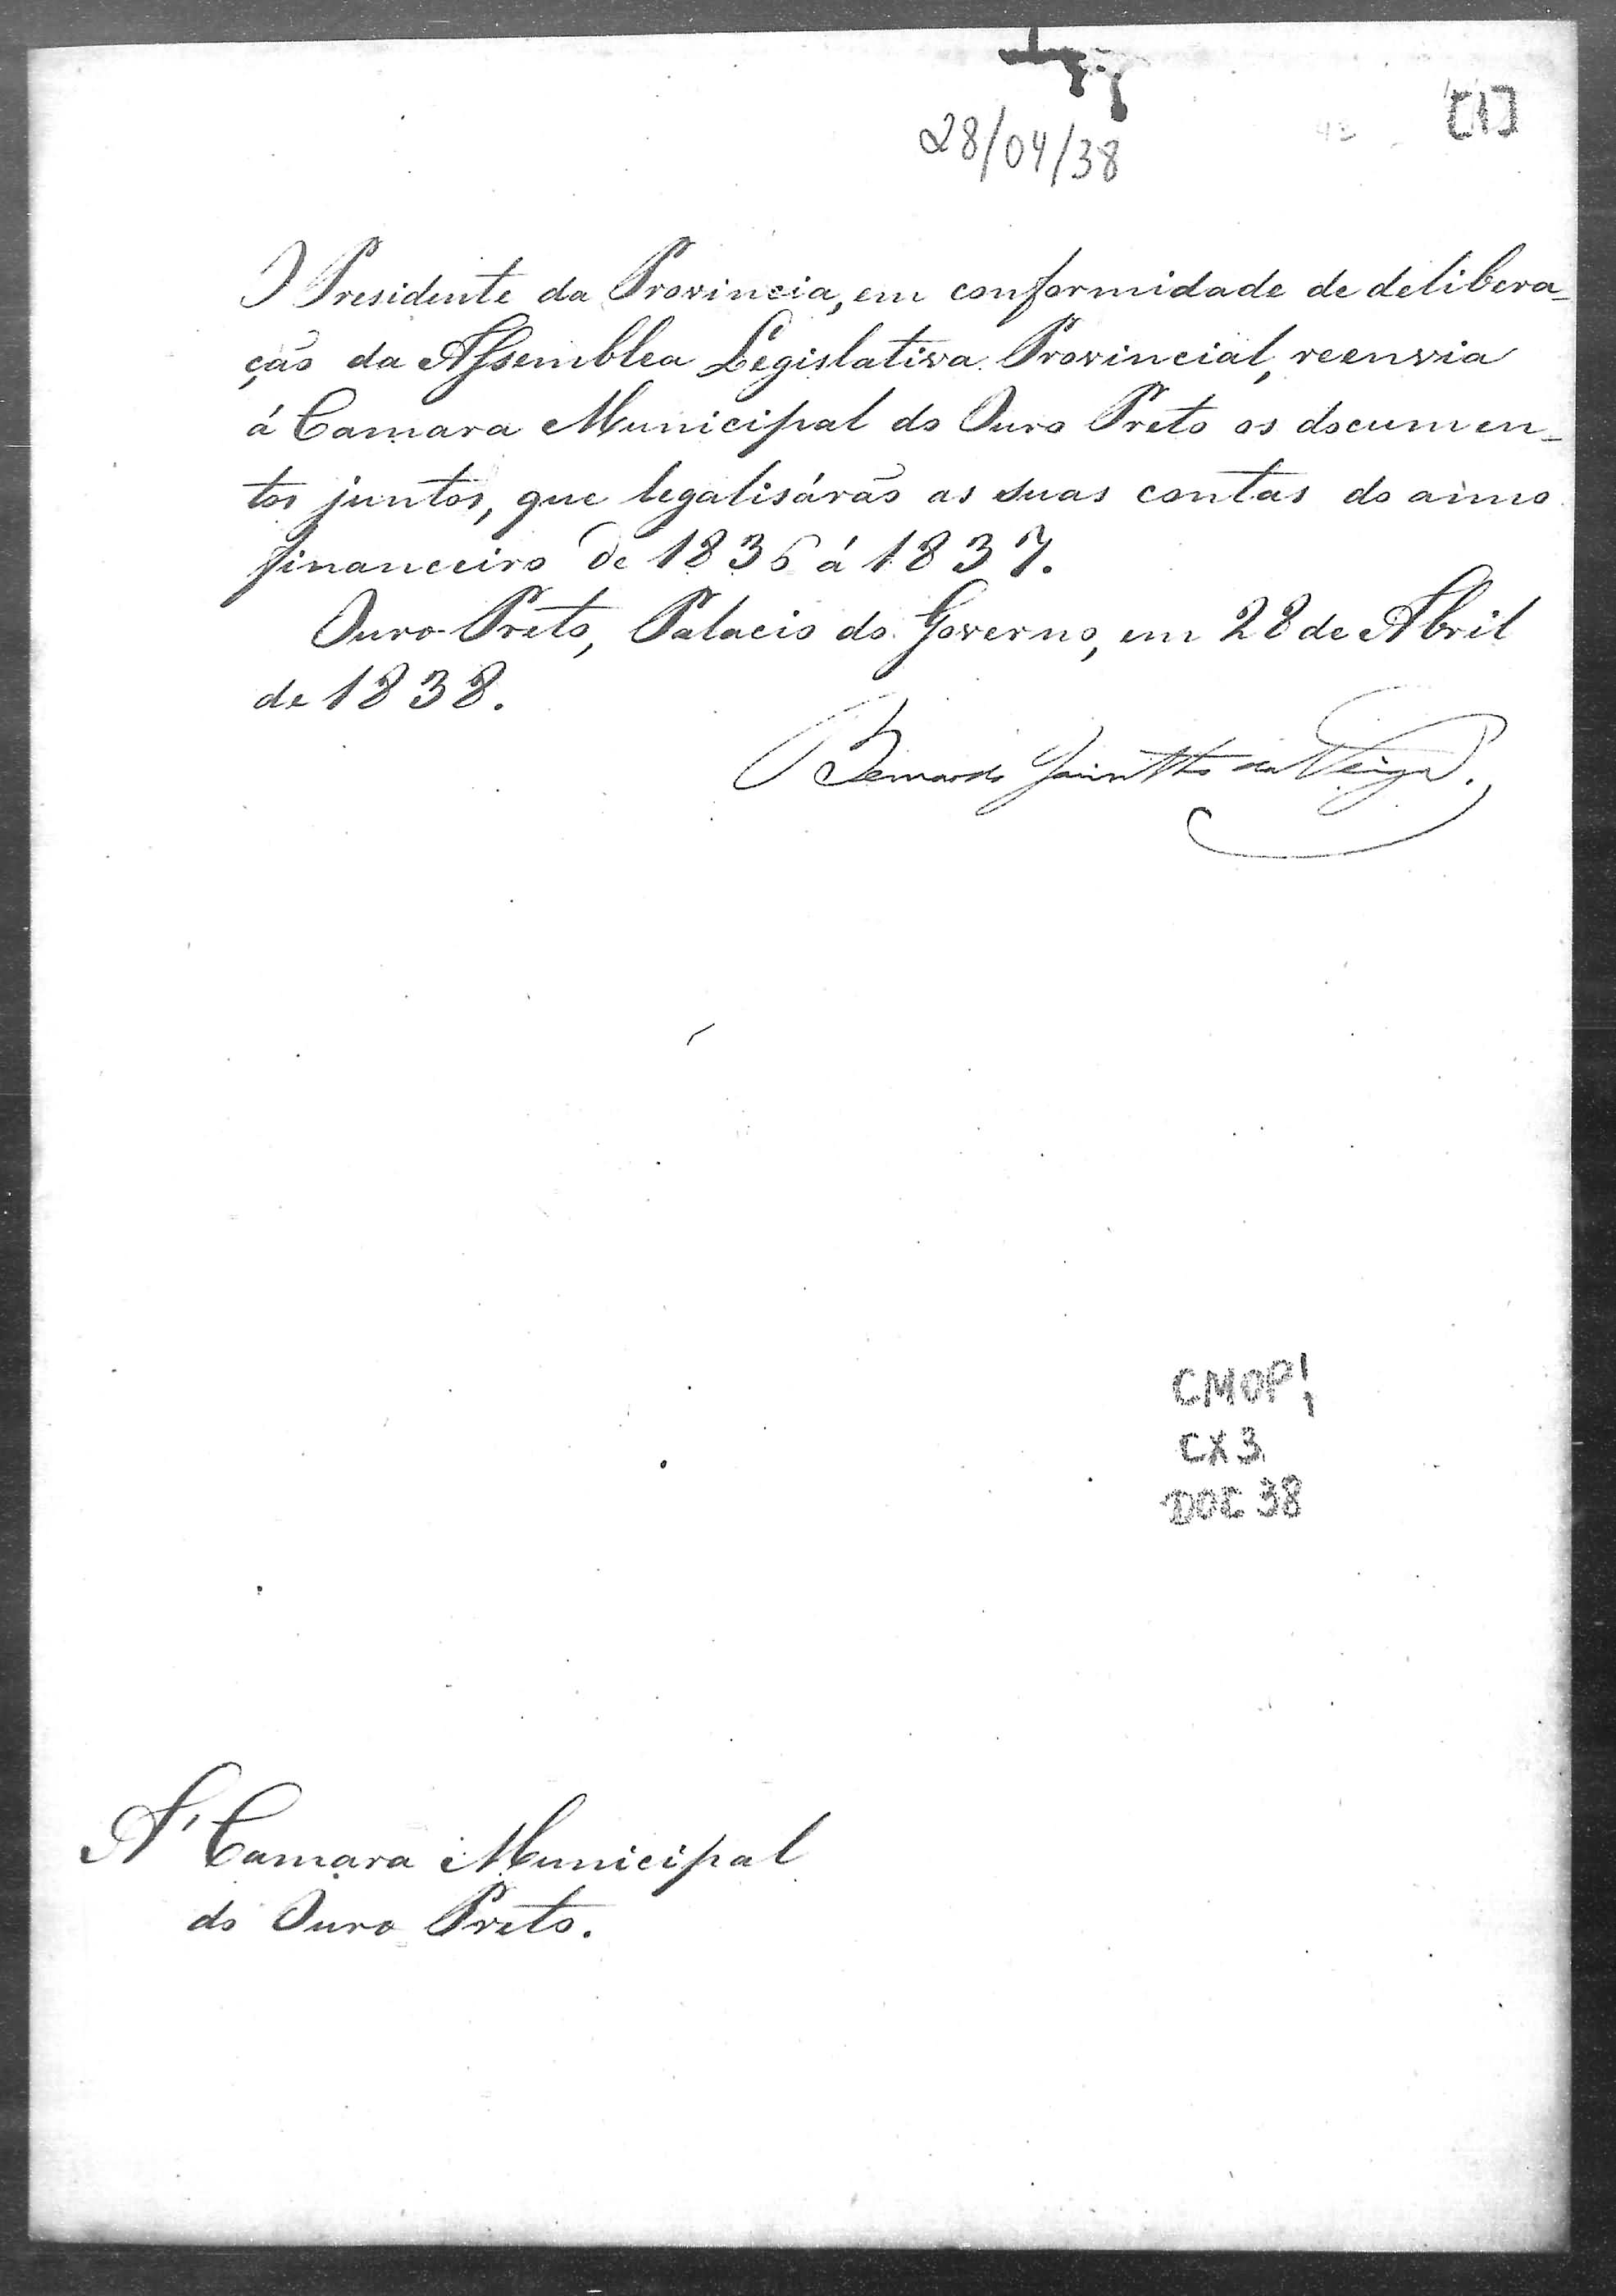 28/04/38
[1]
O Presidente da Provincia, em conformidade de delibera-
ção da Assemblea Legislativa Provincial, reenvia
á Camara Municipal do Ouro Preto os documen-
tos juntos, que legalisárão as suas contas do anno
financeiro de 1836 á 1837.
Ouro Preto, Palacio do Governo, em 28 de Abril
de 1838.
Bernardo Jacintho da Veiga.
CMOP
CX 3
DOC 38
A' Camara Municipal
do Ouro Preto.